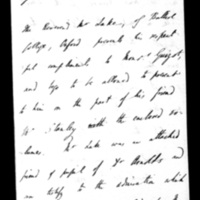 The Reverend Mr Lake, of Balliol
College, Oxford presents his respect
compliments to Mons. Guizot,
and begs to be allowed to present
to him on the part of his friend
Mr Stanley with the enclosed
Mr Lake was an attached
friend & pupil of Dr Arnold's and
can testify to the admiration which